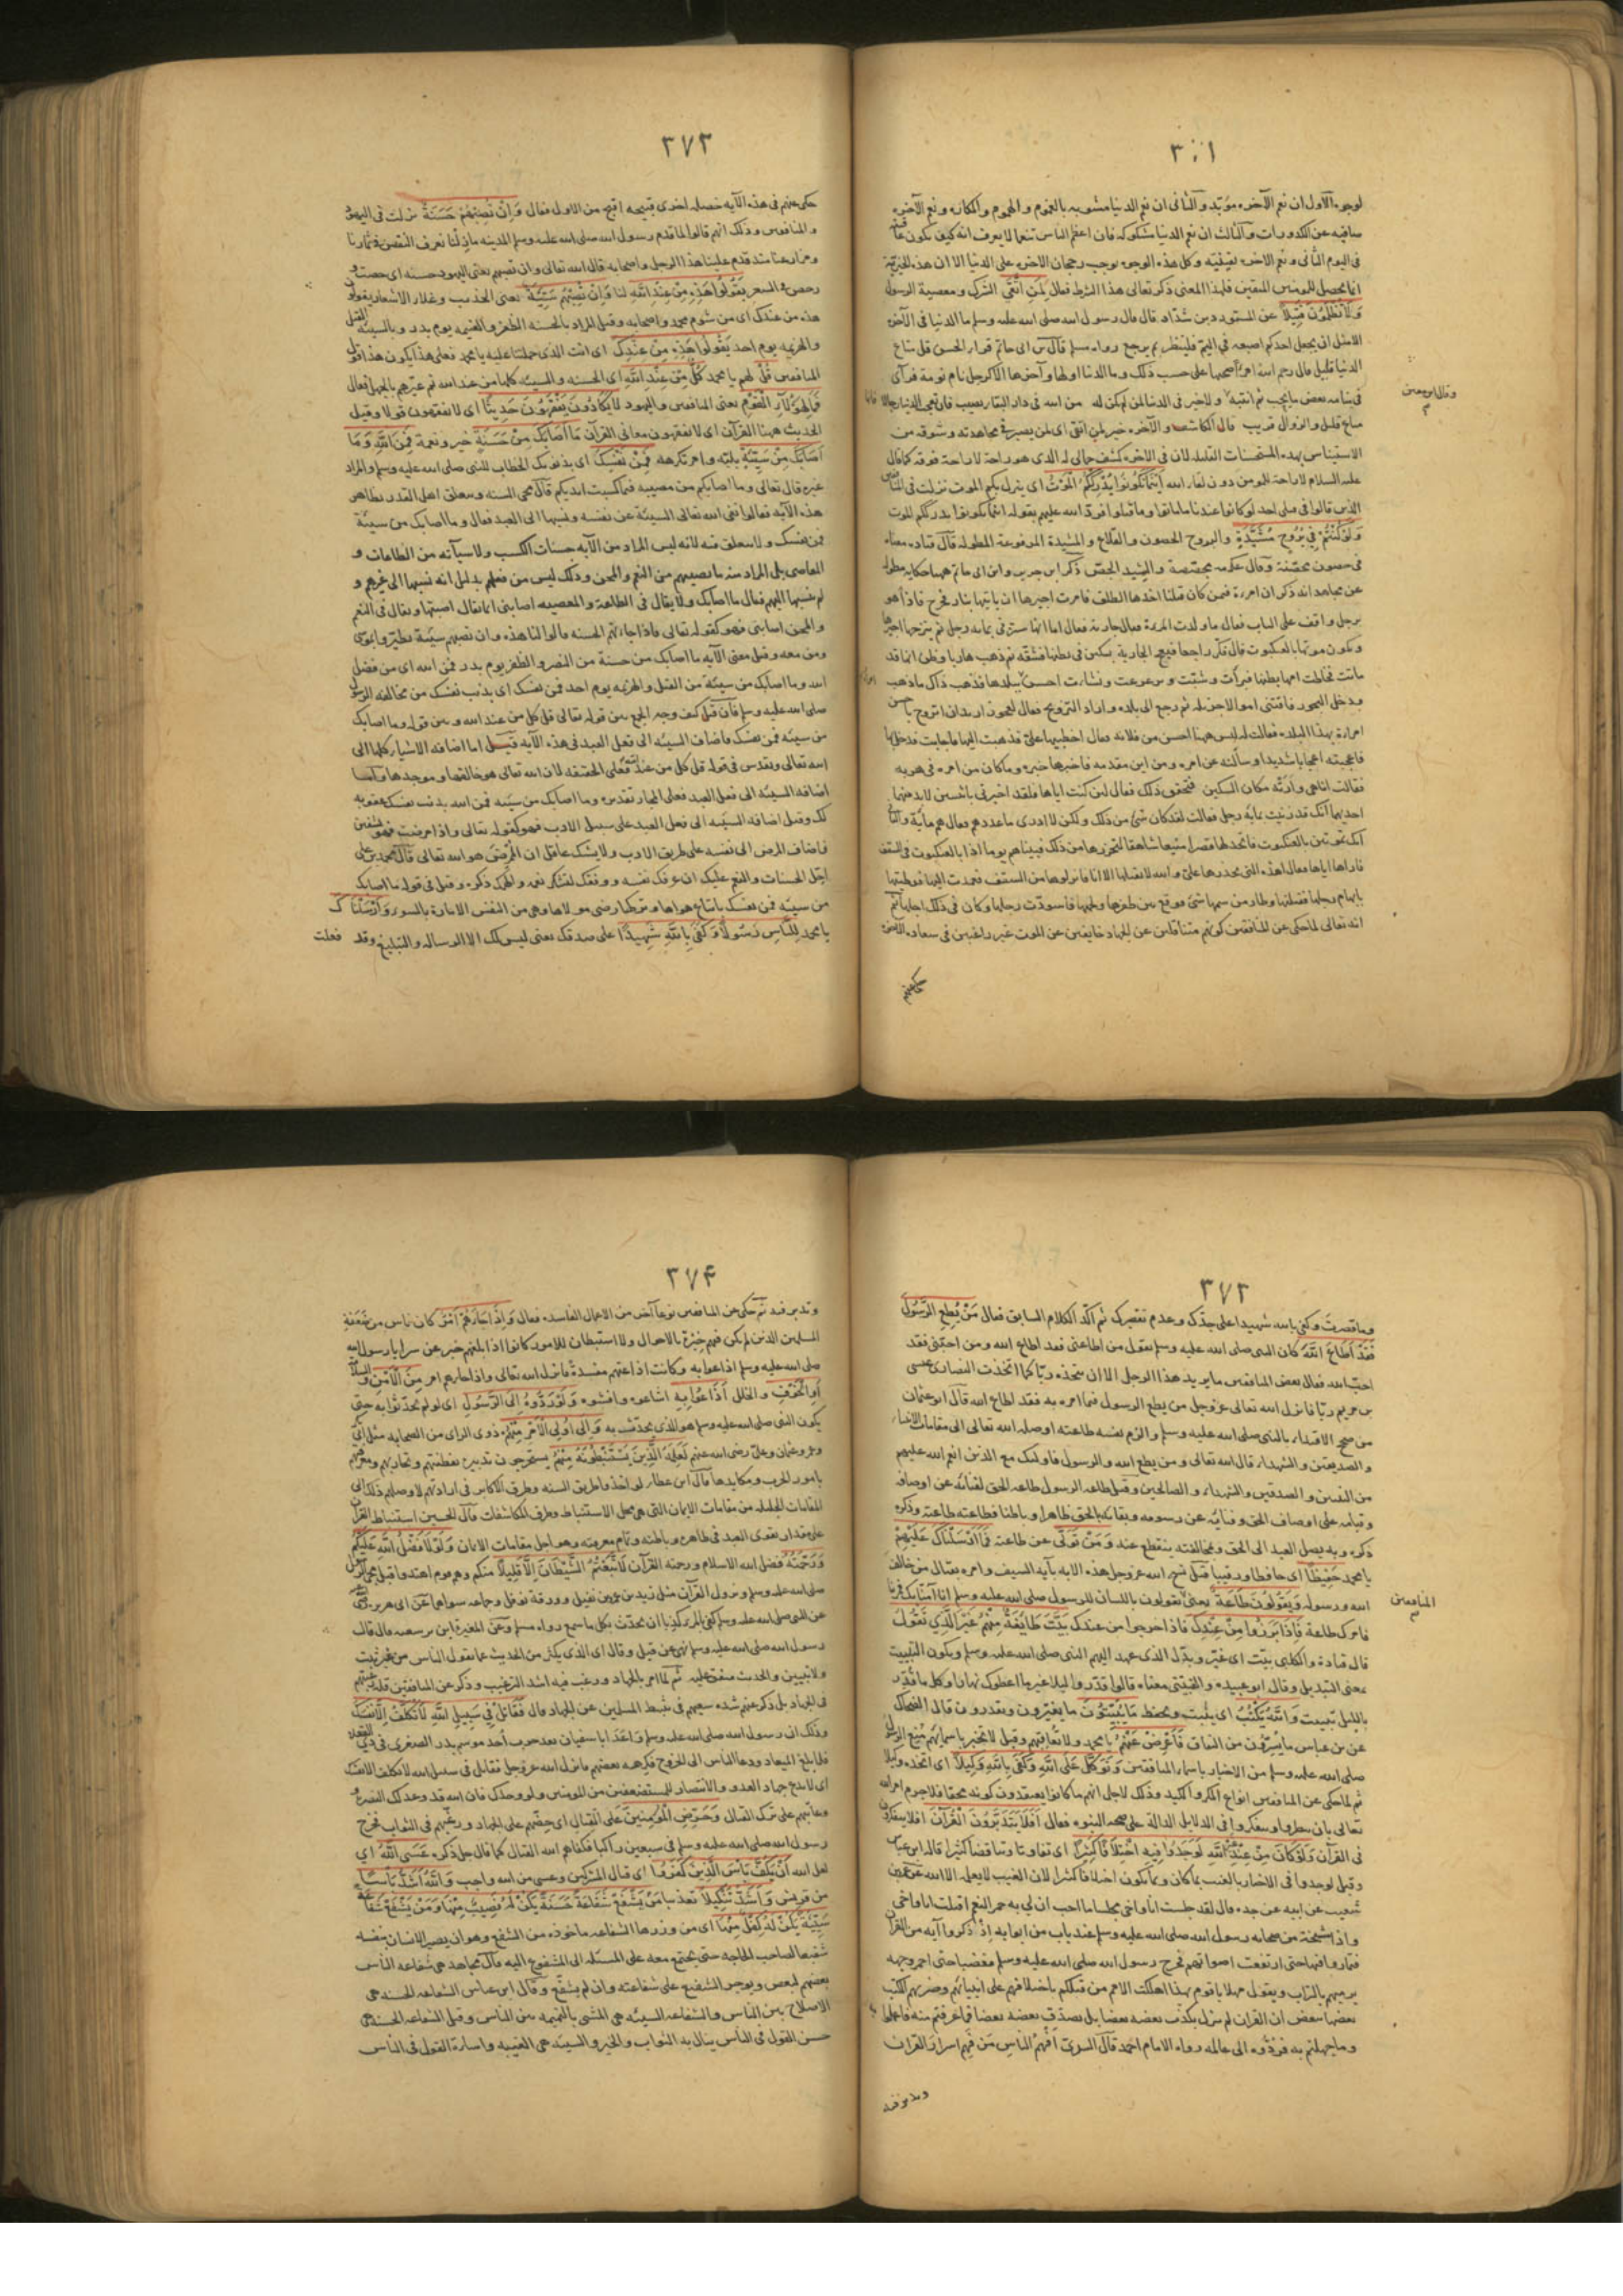 ٣٠١
لوجوه الأول ان نعم الآخره مؤبد والثانى ان نعم الدنيا مشوبه بالغموم والهموم والمكاره ونعم الآخره
صافيه عن الكدورات والثالث ان نعم الدنيا مشكوكه فان اعظم الناس تنعما لا يعرف انه كيف يكون عاقبته
فى اليوم الثانى ونعم الآخره يقينيه وكل هذه الوجوه يوجب رجحان الآخره على الدنيا الا ان هذه الخيرية
انما يحصل للمؤمنين المتقين فلهذا المعنى ذكر تعالى هذا الشرط فقال لِمَنِ اتَّقَى الشرك ومعصية الرسول
وَلَا تُظْلَمُونَ فَتِيلاً عن المستورد بن شدّاد قال قال رسول الله صلى الله عليه وسلم ما الدنيا فى الآخره
الا مثل ان يجعل احدكم اصبعه فى اليم فلينظر بم يرجع رواه مسلم
الدنيا قليل قال رحم الله امرءا صحبها على حسب ذلك وما الدنيا اولها وآخرها الا كرجل نام نومة فرآى
فى منامه بعض ما يحب ثم انتبه
وقال ابن معين
متاع قليل والزوال قريب
عليه السلام لا راحة للمؤمن دون لقاء الله أَيْنَمَا تَكُونُوا يُدْرِكُكُمُ الْمَوْتُ اى ينزل بكم الموت نزلت فى المنافقين
الذين قالوا فى قتلى احد لو كانوا عندنا ما ماتوا وما قتلوا فردّ الله عليهم بقوله اينما تكونوا يدرككم الموت
وَلَوْ كُنْتُمْ فِي بُرُوجٍ مُشَيَّدَةٍ والبروج الحصون والقلاع والمشيدة المرفوعة المطوله قال قتاده معناه
فى حصون محصّنة وقال عكرمه مجصّصة والشيد الجصّ ذكر ابن جرير وابن ابى حاتم ههنا حكايه مطوله
عن مجاهد انه ذكر ان امرءة فيمن كان قبلنا اخذها الطلق فامرت اجيرها ان ياتيها بنار فخرج فاذا هو
برجل واقف على الباب فقال ما ولدت المرءة فقال جاريه فقال اما انها ستزنى بمائة رجل ثم يتزوجها اجيرها
ويكون موتها بالعنكبوت قال فكرّ راجعا فبعج الجارية بسكين فى بطنها فشقّه ثم ذهب هاربا وظن انها قد
ماتت فخاطت امها بطنها فبرأت وشبّت وترعرعت ونشأت احسن ببلدها فذهب ذاك ما ذهب
ودخل البحور فاقتنى اموالا جزيله ثم رجع الى بلده واراد التزويج فقال لعجوز اريد ان اتزوج باحسن
امرءة بهذا البلد فقالت له ليس ههنا احسن من فلانه فقال اخطبيها علىّ فذهبت اليها فاجابت فدخل بها
فاعجبته اعجابا شديدا وسألته عن امره ومن اين مقدمه فاخبرها خبره وما كان من امره فى هربه
فقالت انا هى وأرته مكان السكين فتحقق ذلك فقال لئن كنت اياها فلقد اخبرنى باثنتين لا بد منهما
احديهما انك قد زنيت بمائة رجل فقالت لقد كان شئ من ذلك ولكن لا ادرى ما عددهم فقال هم مائة والثانى
انك تموتين بالعنكبوت فاتخذ لها قصرا منيعا شاهقا لتحرزها من ذلك فبيناهم يوما اذا بالعنكبوت فى السقف
فاراها اياها فقال اهذه التى تحذرها علىّ والله لا يقتلها الا انا فانزلوها من السقف فعمدت اليها فوطئتها
بابهام رجلها فقتلتها وطار من سمها شئ فوقع بين ظفرها ولحمها فاسودّت رجلها وكان فى ذلك اجلها ثم
انه تعالى لما حكى عن المنافقين كونهم متثاقلين عن الجهاد خايفين عن الموت غير راغبين فى سعادة الآخره
حكى عنهم
٢٧٢
حكى عنهم فى هذه الآيه خصله اخرى قبيحه اقبح من الاول فقال وَإِنْ تُصِبْهُمْ حَسَنَةٌ نزلت فى اليهود
والمنافقين وذلك انهم قالوا لما قدم رسول الله صلى الله عليه وسلم المدينه ما زلنا نعرف النقص فى ثمارنا
ومزارعنا منذ قدم علينا هذا الرجل واصحابه قال الله تعالى وان تصبهم يعنى اليهود حسنه اى خصب و
رخص فى السعر يَقُولُوا هَذِهِ مِنْ عِنْدِ اللَّهِ لنا وَإِنْ تُصِبْهُمْ سَيِّئَةٌ يعنى الجذب وغلاء الاسعار يقولوا
هذه من عندك اى من شوم محمد واصحابه وقيل المراد بالحسنه الظفر والغنيمه يوم بدر وبالسيئه القتل
والهزيمه يوم احد يَقُولُوا هَذِهِ مِنْ عِنْدِكَ اى انت الذى حملتنا عليه يا محمد فعلى هذا يكون هذا قول
المنافقين قُلْ لهم يا محمد كُلٌّ مِنْ عِنْدِ اللَّهِ اى الحسنه والسيئه كلها من عند الله ثم عيّرهم بالجهل فقال
فَمَالِ هَؤُلَاءِ الْقَوْمِ يعنى المنافقين واليهود لَا يَكَادُونَ يَفْقَهُونَ حَدِيثًا اى لا يفقهون قولا وقيل
الحديث ههنا القرآن اى لا يفقهون معانى القرآن مَا أَصَابَكَ مِنْ حَسَنَةٍ خير ونعمة فَمِنَ اللَّهِ وَمَا
أَصَابَكَ مِنْ سَيِّئَةٍ بليّه وامر تكرهه فَمِنْ نَفْسِكَ اى بذنوبك الخطاب للنبى صلى الله عليه وسلم والمراد
غيره قال تعالى وما اصابكم من مصيبه فبما كسبت ايديكم قال محى السنه وتعلق اهل القدر بظاهر
هذه الآيه فقالوا نفى الله تعالى السيئة عن نفسه ونسبها الى العبد فقال وما اصابك من سيئة
فمن نفسك ولا متعلق فيه لانه ليس المراد من الآيه حسنات الكسب ولا سيآته من الطاعات و
المعاصى بل المراد منه ما يصيبهم من النعم والمحن وذلك ليس من فعلهم بدليل انه نسبها الى غيرهم و
لم ينسبها اليهم فقال ما اصابك ولا يقال فى الطاعة والمعصيه اصابنى انما يقال اصبتها ويقال فى النعم
والمحن اصابنى فهو كقوله تعالى فاذا جاءتهم الحسنه قالوا لنا هذه وان تصبهم سيئة يطيّروا بموسى
ومن معه وقيل معنى الآيه ما اصابك من حسنة من النصر والظفر يوم بدر فمن الله اى من فضل
الله وما اصابك من سيئة من القتل والهزيمه يوم احد فمن نفسك اى بذنب نفسك من مخالفة الرسول
صلى الله عليه وسلم فان قيل كيف وجه الجمع بين قوله تعالى قل كل من عند الله وبين قوله وما اصابك
من سيئه فمن نفسك فاضاف السيئه الى فعل العبد فى هذه الآيه قيل اما اضافه الاشياء كلها الى
الله تعالى وتقدس فى قوله قل كل من عند الله فعلى الحقيقه لان الله تعالى هو خالقها وموجدها واما
اضافه السيئه الى فعل العبد فعلى المجاز تقديره وما اصابك من سيئه فمن الله بذنب نفسك عقوبه
لك وقيل اضافه السيئه الى فعل العبد على سبيل الادب فهو كقوله تعالى واذا مرضت فهو يشفين
فاضاف المرض الى نفسه على طريق الادب ولا يشك عاقل ان المُمْرض هو الله تعالى قال محمد بن على
من سيئه فمن نفسك باتباع هواها وترك رضى مولاها وهى من النفس الامارة بالسوء وَأَرْسَلْنَاكَ
يا محمد لِلنَّاسِ رَسُولًا وَكَفَى بِاللَّهِ شَهِيدًا على صدقك يعنى ليس لك الا الرساله والتبليغ وقد فعلت
٣٧٢
وما قصرت وكفى بالله شهيدا على جدّك وعدم تقصيرك ثم اكّد الكلام السابق فقال مَنْ يُطِعِ الرَّسُولَ
فَقَدْ أَطَاعَ اللَّهَ كان النبى صلى الله عليه وسلم يقول من اطاعنى فقد اطاع الله ومن احبّنى فقد
احبّ الله فقال بعض المنافقين ما يريد هذا الرجل الا ان نتخذه ربّا كما اتخذت النصارى عيسى
بن مريم ربّا فانزل الله تعالى عز وجل من يطع الرسول فيما امر به فقد اطاع الله قال ابو عثمان
من صحح الاقتداء بالنبى صلى الله عليه وسلم والزم نفسه طاعته اوصله الله تعالى الى مقامات الانبياء
والصديقين والشهداء قال الله تعالى ومن يطع الله والرسول فاولئك مع الذين انعم الله عليهم
من النبيين والصديقين والشهداء والصالحين وقيل طاعه الرسول طاعه الحق لفنائه عن اوصافه
وقيامه على اوصاف الحق وفنائه عن رسومه وبقائه بالحق ظاهرا وباطنا فطاعته طاعته وذكره
ذكره وبه يصل العبد الى الحق وبمخالفته ينقطع عنه وَمَنْ تَوَلَّى عن طاعته فَمَا أَرْسَلْنَاكَ عَلَيْهِمْ
يا محمد حَفِيظًا اى حافظا ورقيبا قيل نسخ الله عز وجل هذه الآيه بآيه السيف وامره بقتال من خالف
الله ورسوله وَيَقُولُونَ طَاعَةٌ يعنى يقولون باللسان للرسول صلى الله عليه وسلم انا آمنّا بك فمرنا
المنافقين
فامرك طاعة فَإِذَا بَرَزُوا مِنْ عِنْدِكَ فاذا خرجوا من عندك بَيَّتَ طَائِفَةٌ مِنْهُمْ غَيْرَ الَّذِي تَقُولُ
قال قتادة والكلبى بيّت اى غيّر وبدّل الذى عهد اليهم النبى صلى الله عليه وسلم ويكون التبييت
بمعنى التبديل وقال ابو عبيده والقتيبى معناه قالوا وقدّروا ليلا غير ما اعطوك نهارا وكل ما قدّر
بالليل تبييت وَاللَّهُ يَكْتُبُ اى يثبت ويحفظ مَا يُبَيِّتُونَ ما يغيّرون ويقدرون قال الضحاك
عن بن عباس ما يُسِرُّون من النفاق فَأَعْرِضْ عَنْهُمْ يا محمد ولا تعاقبهم وقيل لا تخبر باسمائهم مُنع الرسول
صلى الله عليه وسلم من الاخبار باسماء المنافقين وَتَوَكَّلْ عَلَى اللَّهِ وَكَفَى بِاللَّهِ وَكِيلاً اى اتخذه وكيلا
ثم لما حكى عن المنافقين انواع المكر والكيد وذلك لاجل انهم ما كانوا يعتقدون كونه محقا فلا جرم امر الله
تعالى بان ينظروا ويتفكروا فى الدلايل الدالة على صحه النبوه فقال أَفَلَا يَتَدَبَّرُونَ الْقُرْآنَ افلا يتفكرون
فى القرآن وَلَوْ كَانَ مِنْ عِنْدِ غَيْرِ اللَّهِ لَوَجَدُوا فِيهِ اخْتِلَافًا كَثِيرًا اى تفاوتا وتناقضا كثيرا قاله ابن عباس
وقيل لوجدوا فى الاخبار بالغيب بما كان وبما يكون اختلافا كثيرا لان الغيب لا يعلمه الا الله عن عمرو بن
شعيب عن ابيه عن جده قال لقد جلست انا واخى مجلسا ما احب ان لى به حمر النعم اقبلت انا واخى
واذا مشيخة من صحابه رسول الله صلى الله عليه وسلم عند باب من ابوابه إذ ذكروا آيه من القرآن
فتماروا فيها حتى ارتفعت اصواتهم فخرج رسول الله صلى الله عليه وسلم مغضبا حتى احمر وجهه
يرميهم بالتراب ويقول مهلا يا قوم بهذا اهلكت الامم من قبلكم باختلافهم على انبيائهم وضربهم الكتب
بعضها ببعض ان القرآن لم ينزل يكذب بعضه بعضا بل يصدق بعضه بعضا فما عرفتم منه فاعملوا به
وما جهلتم به فردّوه الى عالمه رواه الامام احمد قال السرى افهم الناس من فهم اسرار القرآن
وتدبر فيه
٢٧۴
وتدبر فيه ثم حكى عن المنافقين نوعا آخر من الاعمال الفاسده فقال وَإِذَا جَاءَهُمْ أَمْرٌ كان ناس من ضَعَفَةِ
المسلمين الذين لم يكن فيهم خبرة بالاحوال ولا استبطان للامور كانوا اذا بلغهم خبر عن سرايا رسول الله
صلى الله عليه وسلم اذاعوا به وكانت اذاعتهم مفسدة فانزل الله تعالى واذا جاءهم امر مِنَ الْأَمْنِ
أَوِ الْخَوْفِ والخلل أَذَاعُوا بِهِ اشاعوه وافشوه وَلَوْ رَدُّوهُ إِلَى الرَّسُولِ اى لو لم يحدّثوا به حتى
يكون النبى صلى الله عليه وسلم هو الذى يحدّث به وَإِلَى أُولِي الْأَمْرِ مِنْهُمْ ذوى الراى من الصحابه مثل ابى بكر
وعمر وعثمان وعلىّ رضى الله عنهم لَعَلِمَهُ الَّذِينَ يَسْتَنْبِطُونَهُ مِنْهُمْ يستخرجون تدبيره بفطنتهم وتجاربهم ومعرفتهم
بامور الحرب ومكايدها قال ابن عطا لو اخذوا طريق السنه وطرق الاكابر فى ارادتهم لاوصلهم ذلك الى
المقامات الجليله من مقامات الايمان التى هى محل الاستنباط وطرق المكاشفات قال الحسين استنباط القرآن
على مقدار تقوى العبد فى ظاهره وباطنه وتمام معرفته وهو اجل مقامات الايمان وَلَوْلَا فَضْلُ اللَّهِ عَلَيْكُمْ
وَرَحْمَتُهُ فضل الله الاسلام ورحمته القرآن لَاتَّبَعْتُمُ الشَّيْطَانَ إِلَّا قَلِيلاً منكم وهم قوم اهتدوا قبل مجئ الرسول
صلى الله عليه وسلم ونزول القرآن مثل زيد بن عمرو بن نفيل وورقة بن نوفل وجماعه سواهما عن ابى هريره
عن النبى صلى الله عليه وسلم كفى بالمرء كذبا ان يحدّث بكل ما سمع رواه مسلم وعن المغيرة ابن شعبه قال قال
رسول الله صلى الله عليه وسلم نهى عن قيل وقال اى الذى يكثر من الحديث عما يقول الناس من غير تثبت
ولا تبيين والحديث متفق عليه ثم لما امر بالجهاد ورغب فيه اشد الترغيب وذكر عن المنافقين قله رغبتهم
فى الجهاد بل ذكر عنهم شده سعيهم فى تثبيط المسلمين عن الجهاد قال فَقَاتِلْ فِي سَبِيلِ اللَّهِ لَا تُكَلَّفُ إِلَّا نَفْسَكَ
وذلك ان رسول الله صلى الله عليه وسلم واعَدَ ابا سفيان بعد حرب أُحد موسم بدر الصغرى فى ذى القعده
فلما بلغ الميعاد ودعا الناس الى الخروج فكرهه بعضهم فانزل الله عز وجل فقاتل فى سبيل الله لا تكلف الا نفسك
اى لا تدع جهاد العدو والانتصار للمستضعفين من المؤمنين ولو وحدك فان الله قد وعدك النصرة
وعاتبهم على ترك القتال وَحَرِّضِ الْمُؤْمِنِينَ عَلَى الْقِتَالِ اى حضّهم على الجهاد ورغّبهم فى الثواب فخرج
رسول الله صلى الله عليه وسلم فى سبعين راكبا فكفاهم الله القتال كما قال جل ذكره عَسَى اللَّهُ اى
لعل الله أَنْ يَكُفَّ بَأْسَ الَّذِينَ كَفَرُوا اى قتال المشركين وعسى من الله واجب وَاللَّهُ أَشَدُّ بَأْسًا
من قريش وَأَشَدُّ تَنْكِيلاً تعذيبا مَنْ يَشْفَعْ شَفَاعَةً حَسَنَةً يَكُنْ لَهُ نَصِيبٌ مِنْهَا وَمَنْ يَشْفَعْ شَفَاعَةً
سَيِّئَةً يَكُنْ لَهُ كِفْلٌ مِنْهَا اى من وزرها الشفاعه ماخوذه من الشفع وهو ان يصير الانسان نفسه
شفعا لصاحب الحاجه حتى يجتمع معه على المسئله الى المشفوع اليه قال مجاهد هى شفاعه الناس
بعضهم لبعض ويوجر الشفيع على شفاعته وان لم يشفّع وقال ابن عباس الشفاعه الحسنه هى
الاصلاح بين الناس والشفاعه السيئه هى المشى بالنميمه بين الناس وقيل الشفاعه الحسنه هى
حسن القول فى الناس ينال به الثواب والخير والسيئه هى الغيبه واساءة القول فى الناس